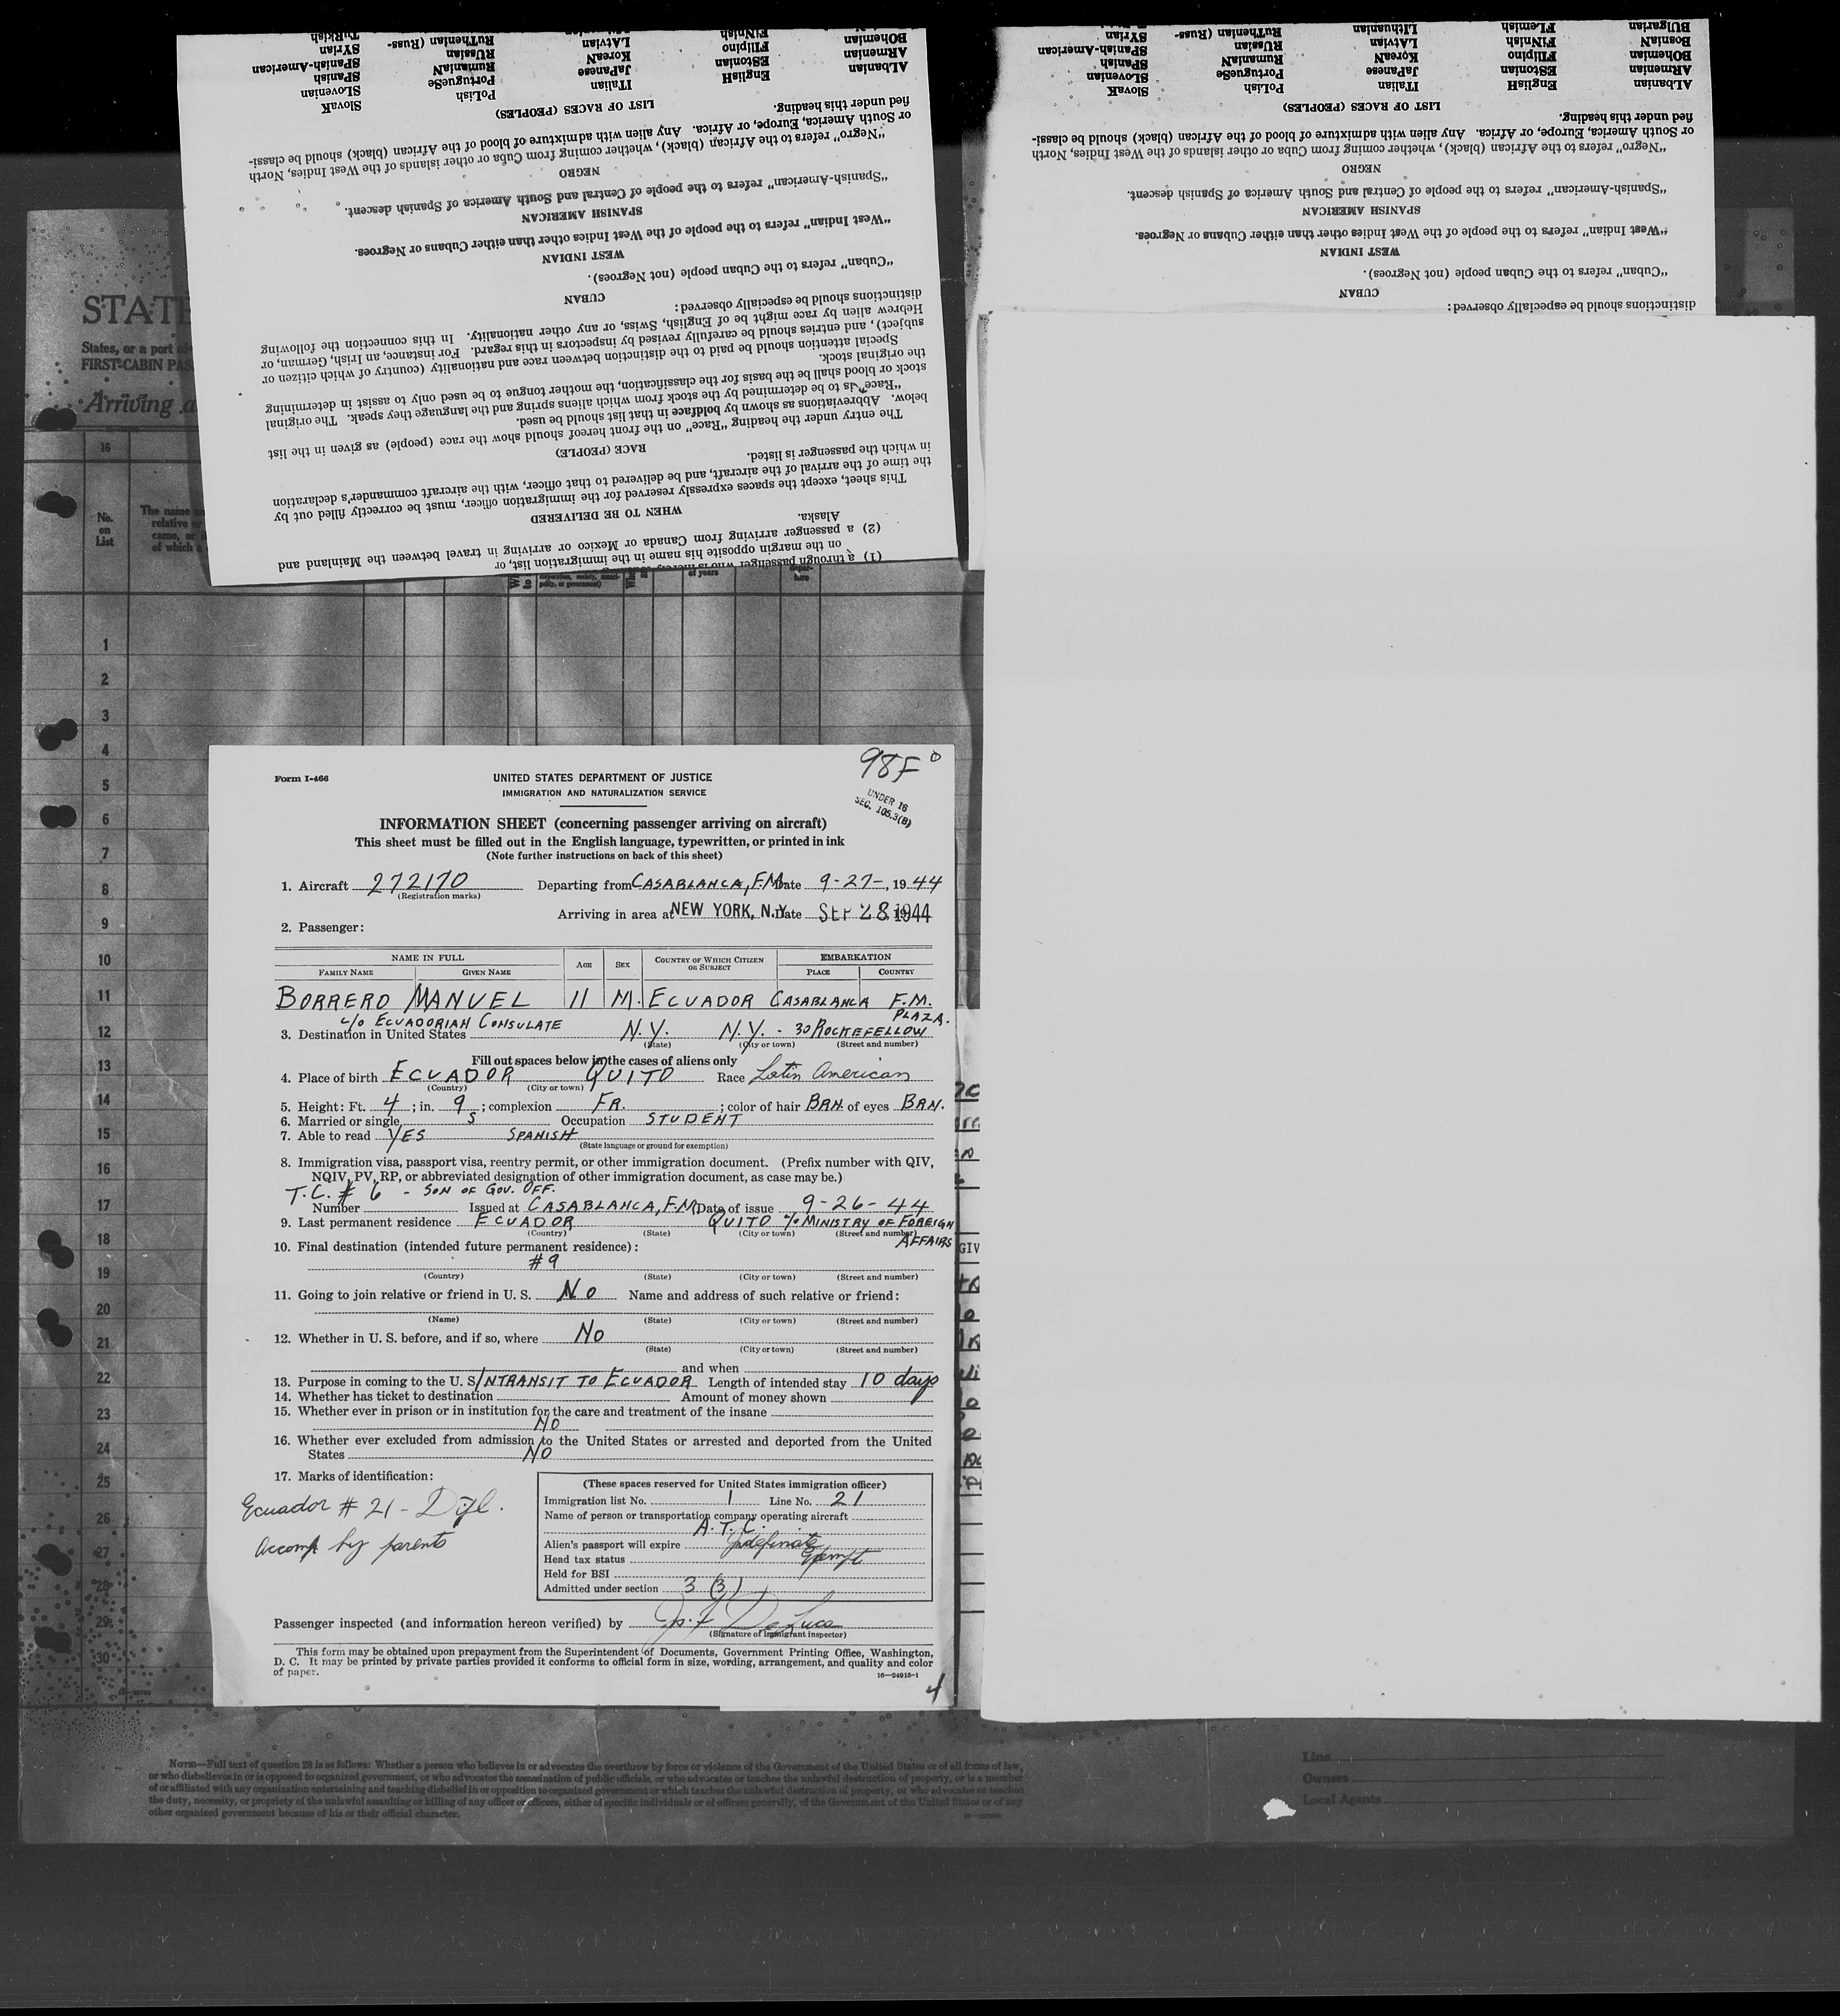 TuRkish
SYrian RuThenian (Russ- FiNnish
SPanish-American RUssian LAtvian FIlipino BOhemian
SPanish RumaniaN KoreaN EStonian ARmenian
SLOvenian PortugueSe JaPanese EngliSH ALbanian
SlovaK PoLish ITalian
LIST OF RACES (PEOPLES)
fied under this heading.
or South America, Europe, or Africa. Any alien with admixture of blood of the African (black) should be classi-
"Negro" refers to the African (black), whether coming from Cuba or other islands of the West Indies, North
NEGRO
"Spanish-American" refers to the people of Central and South America of Spanish descent.
SPANISH AMERICAN
"West Indian" refers to the people of the West Indies other than either Cubans or Negroes.
WEST INDIAN
"Cuban" refers to the Cuban people (not Negroes).
CUBAN
distinctions should be especially observed:
Hebrew alien by race might be of English, Swiss, or any other nationality. In this connection the following
subject), and entries should be carefully revised by inspectors in this regard. For instance, an Irish, German, or
Special attention should be paid to the distinction between race and nationality (country of which citizen or
the original stock.
stock or blood shall be the basis for the classification, the mother tongue to be used only to assist in determining
"Race" is to be determined by the stock from which aliens spring and the language they speak. The original
below. Abbreviations as shown by boldface in that list should be used.
The entry under the heading "Race" on the front hereof should show the race (people) as given in the list
RACE (PEOPLE)
in which the passenger is listed.
the time of the arrival of the aircraft, and be delivered to that officer, with the aircraft commander's declaration
This sheet, except the spaces expressly reserved for the immigration officer, must be correctly filled out by
WHEN TO BE DELIVERED
Alaska.
(2) a passenger arriving from Canada or Mexico or arriving in travel between the Mainland and
on the margin opposite his name in the immigration list, or
(1) a through passenger who is
BUlgarian FLemish LIthuanian RuThenian (Russ- SYrian
BosniaN FiNnish LAtvian RUssian SPanish-American
BOhemian FIlipino KoreaN RumaniaN SPanish
ARmenian EStonian JaPanese PortugueSe SLOvenian
ALbanian EngliSH ITalian PoLish SlovaK
LIST OF RACES (PEOPLES)
fied under this heading.
or South America, Europe, or Africa. Any alien with admixture of blood of the African (black) should be classi-
"Negro" refers to the African (black), whether coming from Cuba or other islands of the West Indies, North
NEGRO
"Spanish-American" refers to the people of Central and South America of Spanish descent.
SPANISH AMERICAN
"West Indian" refers to the people of the West Indies other than either Cubans or Negroes.
WEST INDIAN
"Cuban" refers to the Cuban people (not Negroes).
CUBAN
distinctions should be especially observed:
STATE
States, or a port of
FIRST-CABIN PAS
Arriving a
16
No. on List
The name
relative or
came, or
of which a
of years
1
2
3
4
5
6
7
8
9
10
11
12
13
14
15
16
17
18
19
20
21
22
23
24
25
26
27
28
29
30
98F
UNDER 16
SEC. 105.3(B)
Form I-466
UNITED STATES DEPARTMENT OF JUSTICE
IMMIGRATION AND NATURALIZATION SERVICE
INFORMATION SHEET (concerning passenger arriving on aircraft)
This sheet must be filled out in the English language, typewritten, or printed in ink
(Note further instructions on back of this sheet)
1. Aircraft 272170 Departing from CASABLANCA, F.M. Date 9-27-, 1944
(Registration marks)
Arriving in area at NEW YORK, N.Y. Date SEP 28 1944
2. Passenger:
NAME IN FULL AGE SEX COUNTRY OF WHICH CITIZEN OR SUBJECT EMBARKATION
FAMILY NAME GIVEN NAME PLACE COUNTRY
BORRERO MANUEL 11 M. ECUADOR CASABLANCA F.M.
c/o ECUADORIAN CONSULATE PLAZA.
3. Destination in United States N.Y. N.Y. - 30 ROCKEFELLOW
(State) (City or town) (Street and number)
Fill out spaces below in the cases of aliens only
4. Place of birth ECUADOR QUITO Race Latin American
(Country) (City or town)
5. Height: Ft. 4; in. 9; complexion FR.; color of hair BRN. of eyes BRN.
6. Married or single S Occupation STUDENT
7. Able to read YES SPANISH
(State language or ground for exemption)
8. Immigration visa, passport visa, reentry permit, or other immigration document. (Prefix number with QIV,
NQIV, PV, RP, or abbreviated designation of other immigration document, as case may be.)
T.C. # 6 - SON OF GOV. OFF.
Number Issued at CASABLANCA, F.M. Date of issue 9-26-44
9. Last permanent residence ECUADOR QUITO c/o MINISTRY OF FOREIGN
(Country) (State) (City or town) (Street and number)
AFFAIRS
10. Final destination (intended future permanent residence):
#9
(Country) (State) (City or town) (Street and number)
11. Going to join relative or friend in U. S. No Name and address of such relative or friend:
(Name) (State) (City or town) (Street and number)
12. Whether in U. S. before, and if so, where No
(State) (City or town) (Street and number)
and when
13. Purpose in coming to the U. S. INTRANSIT TO ECUADOR Length of intended stay 10 days
14. Whether has ticket to destination Amount of money shown
15. Whether ever in prison or in institution for the care and treatment of the insane
NO
16. Whether ever excluded from admission to the United States or arrested and deported from the United
States NO
17. Marks of identification:
Ecuador # 21 - Dipl.
Accomp by parents
(These spaces reserved for United States immigration officer)
Immigration list No. 1 Line No. 21
Name of person or transportation company operating aircraft
A.T.C.
Alien's passport will expire Indefinate
Head tax status Exempt
Held for BSI
Admitted under section 3 (3)
Passenger inspected (and information hereon verified) by Jos. F. DeLuca
(Signature of immigrant inspector)
This form may be obtained upon prepayment from the Superintendent of Documents, Government Printing Office, Washington,
D. C. It may be printed by private parties provided it conforms to official form in size, wording, arrangement, and quality and color
of paper.
16—24915-1
4
GIV
NOTE—Full text of question 28 is as follows: Whether a person who believes in or advocates the overthrow by force or violence of the Government of the United States or of all forms of law,
or who disbelieves in or is opposed to organized government, or who advocates the assassination of public officials, or who advocates or teaches the unlawful destruction of property, or is a member
of or affiliated with any organization entertaining and teaching disbelief in or opposition to organized government or which teaches the unlawful destruction of property, or who advocates or teaches
the duty, necessity, or propriety of the unlawful assaulting or killing of any officer or officers, either of specific individuals or of officers generally, of the Government of the United States or of any
other organized government because of his or their official character.
Line
Owners
Local Agents